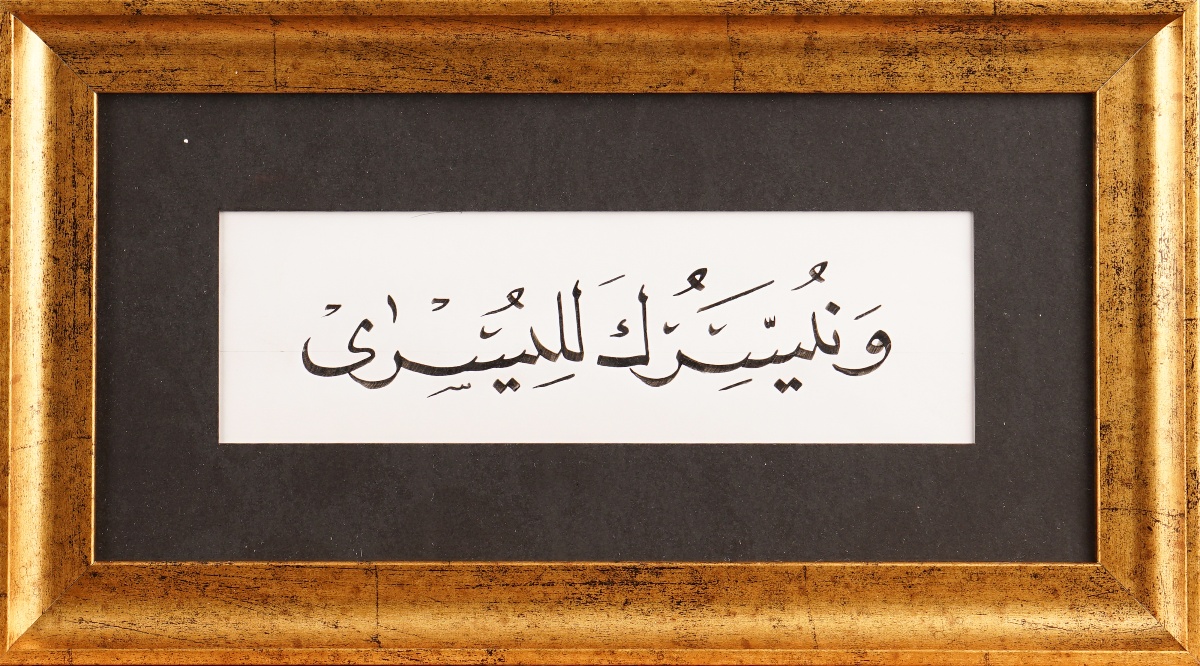 وَنُيَسِّرُكَ لِلْيُسْرٰى